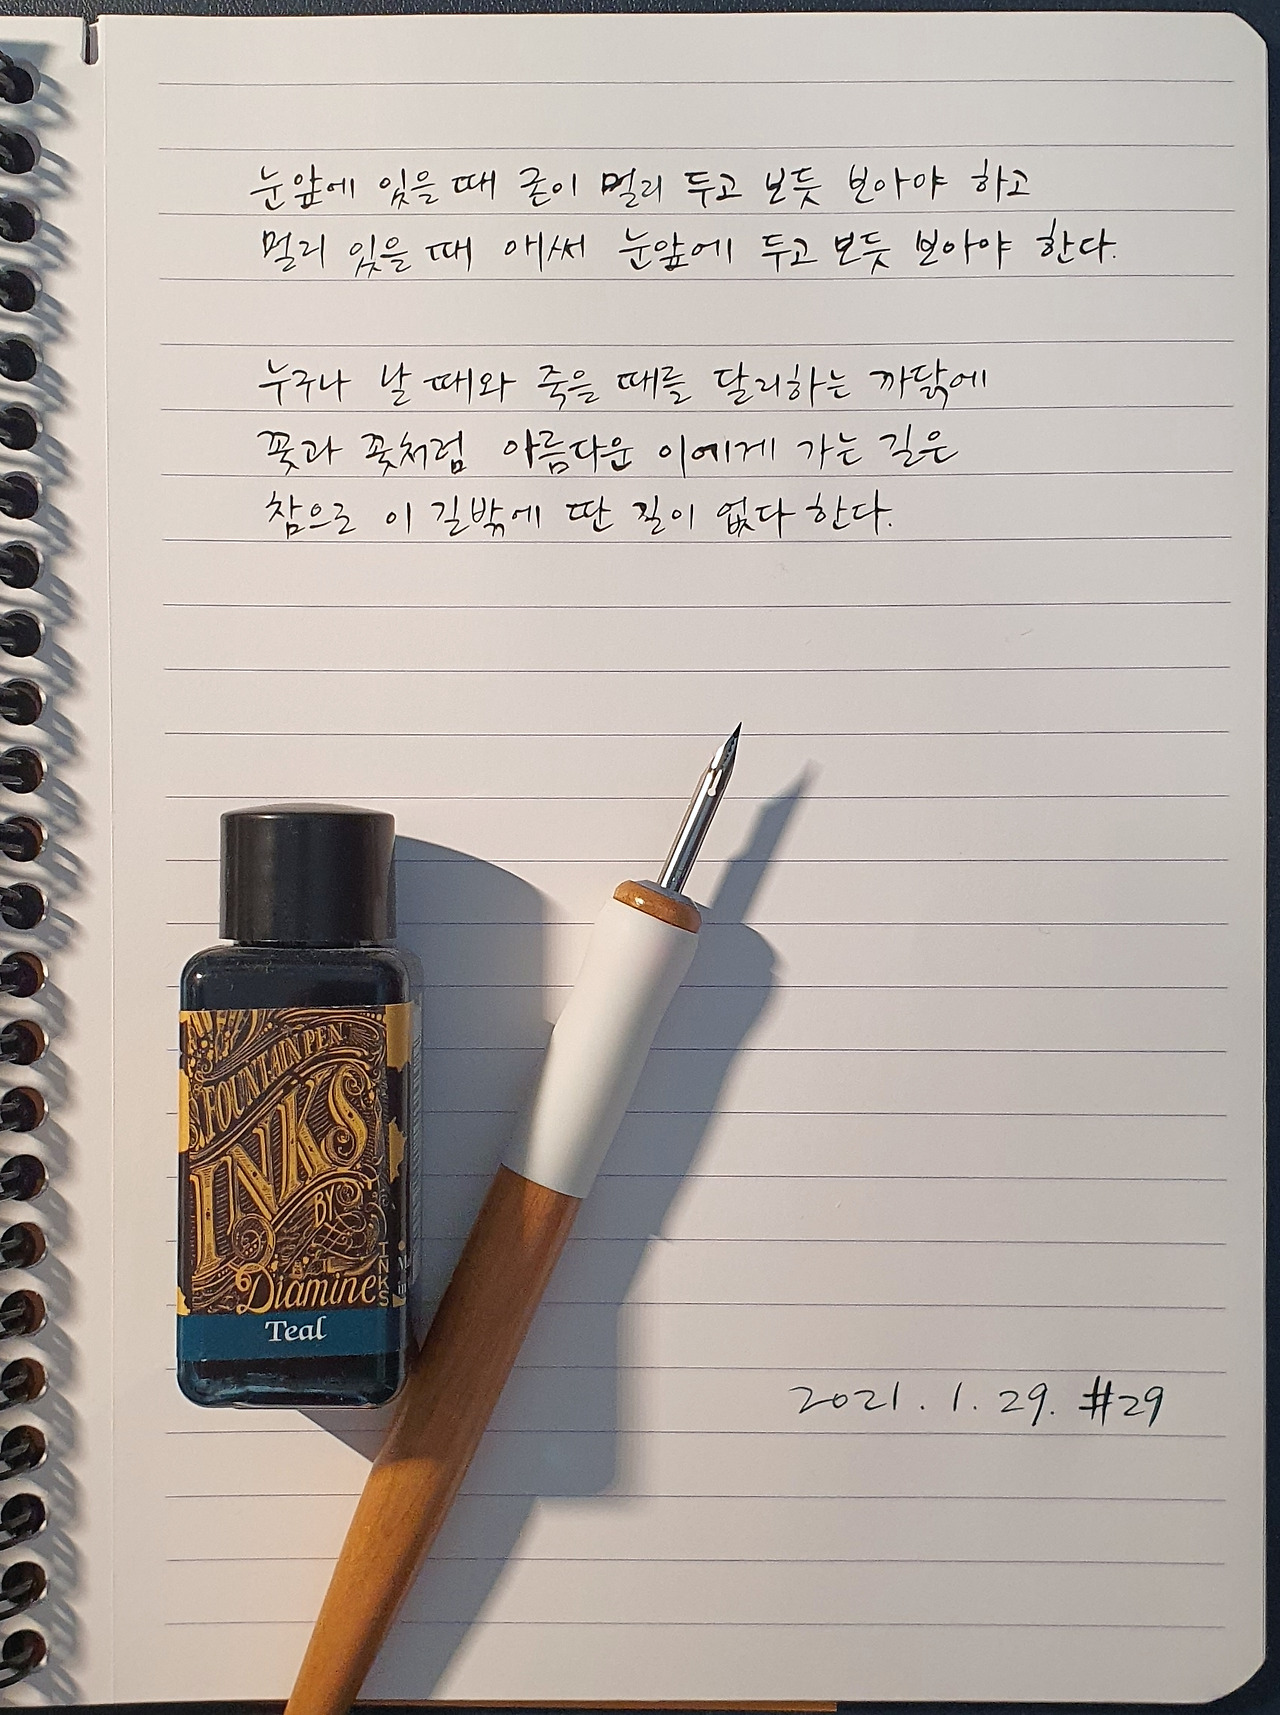 눈앞에 있을 때 곧이 멀리 두고 보듯 보아야 하고
멀리 있을 때 애써 눈앞에 두고 보듯 보아야 한다.
누구나 날 때와 죽을 때를 달리하는 까닭에
꽃과 꽃처럼 아름다운 이에게 가는 길은
참으로 이 길밖에 딴 길이 없다 한다.
FOUNTAIN PEN
INKS
BY
Diamine
INKS
Teal
2021. 1. 29. #29